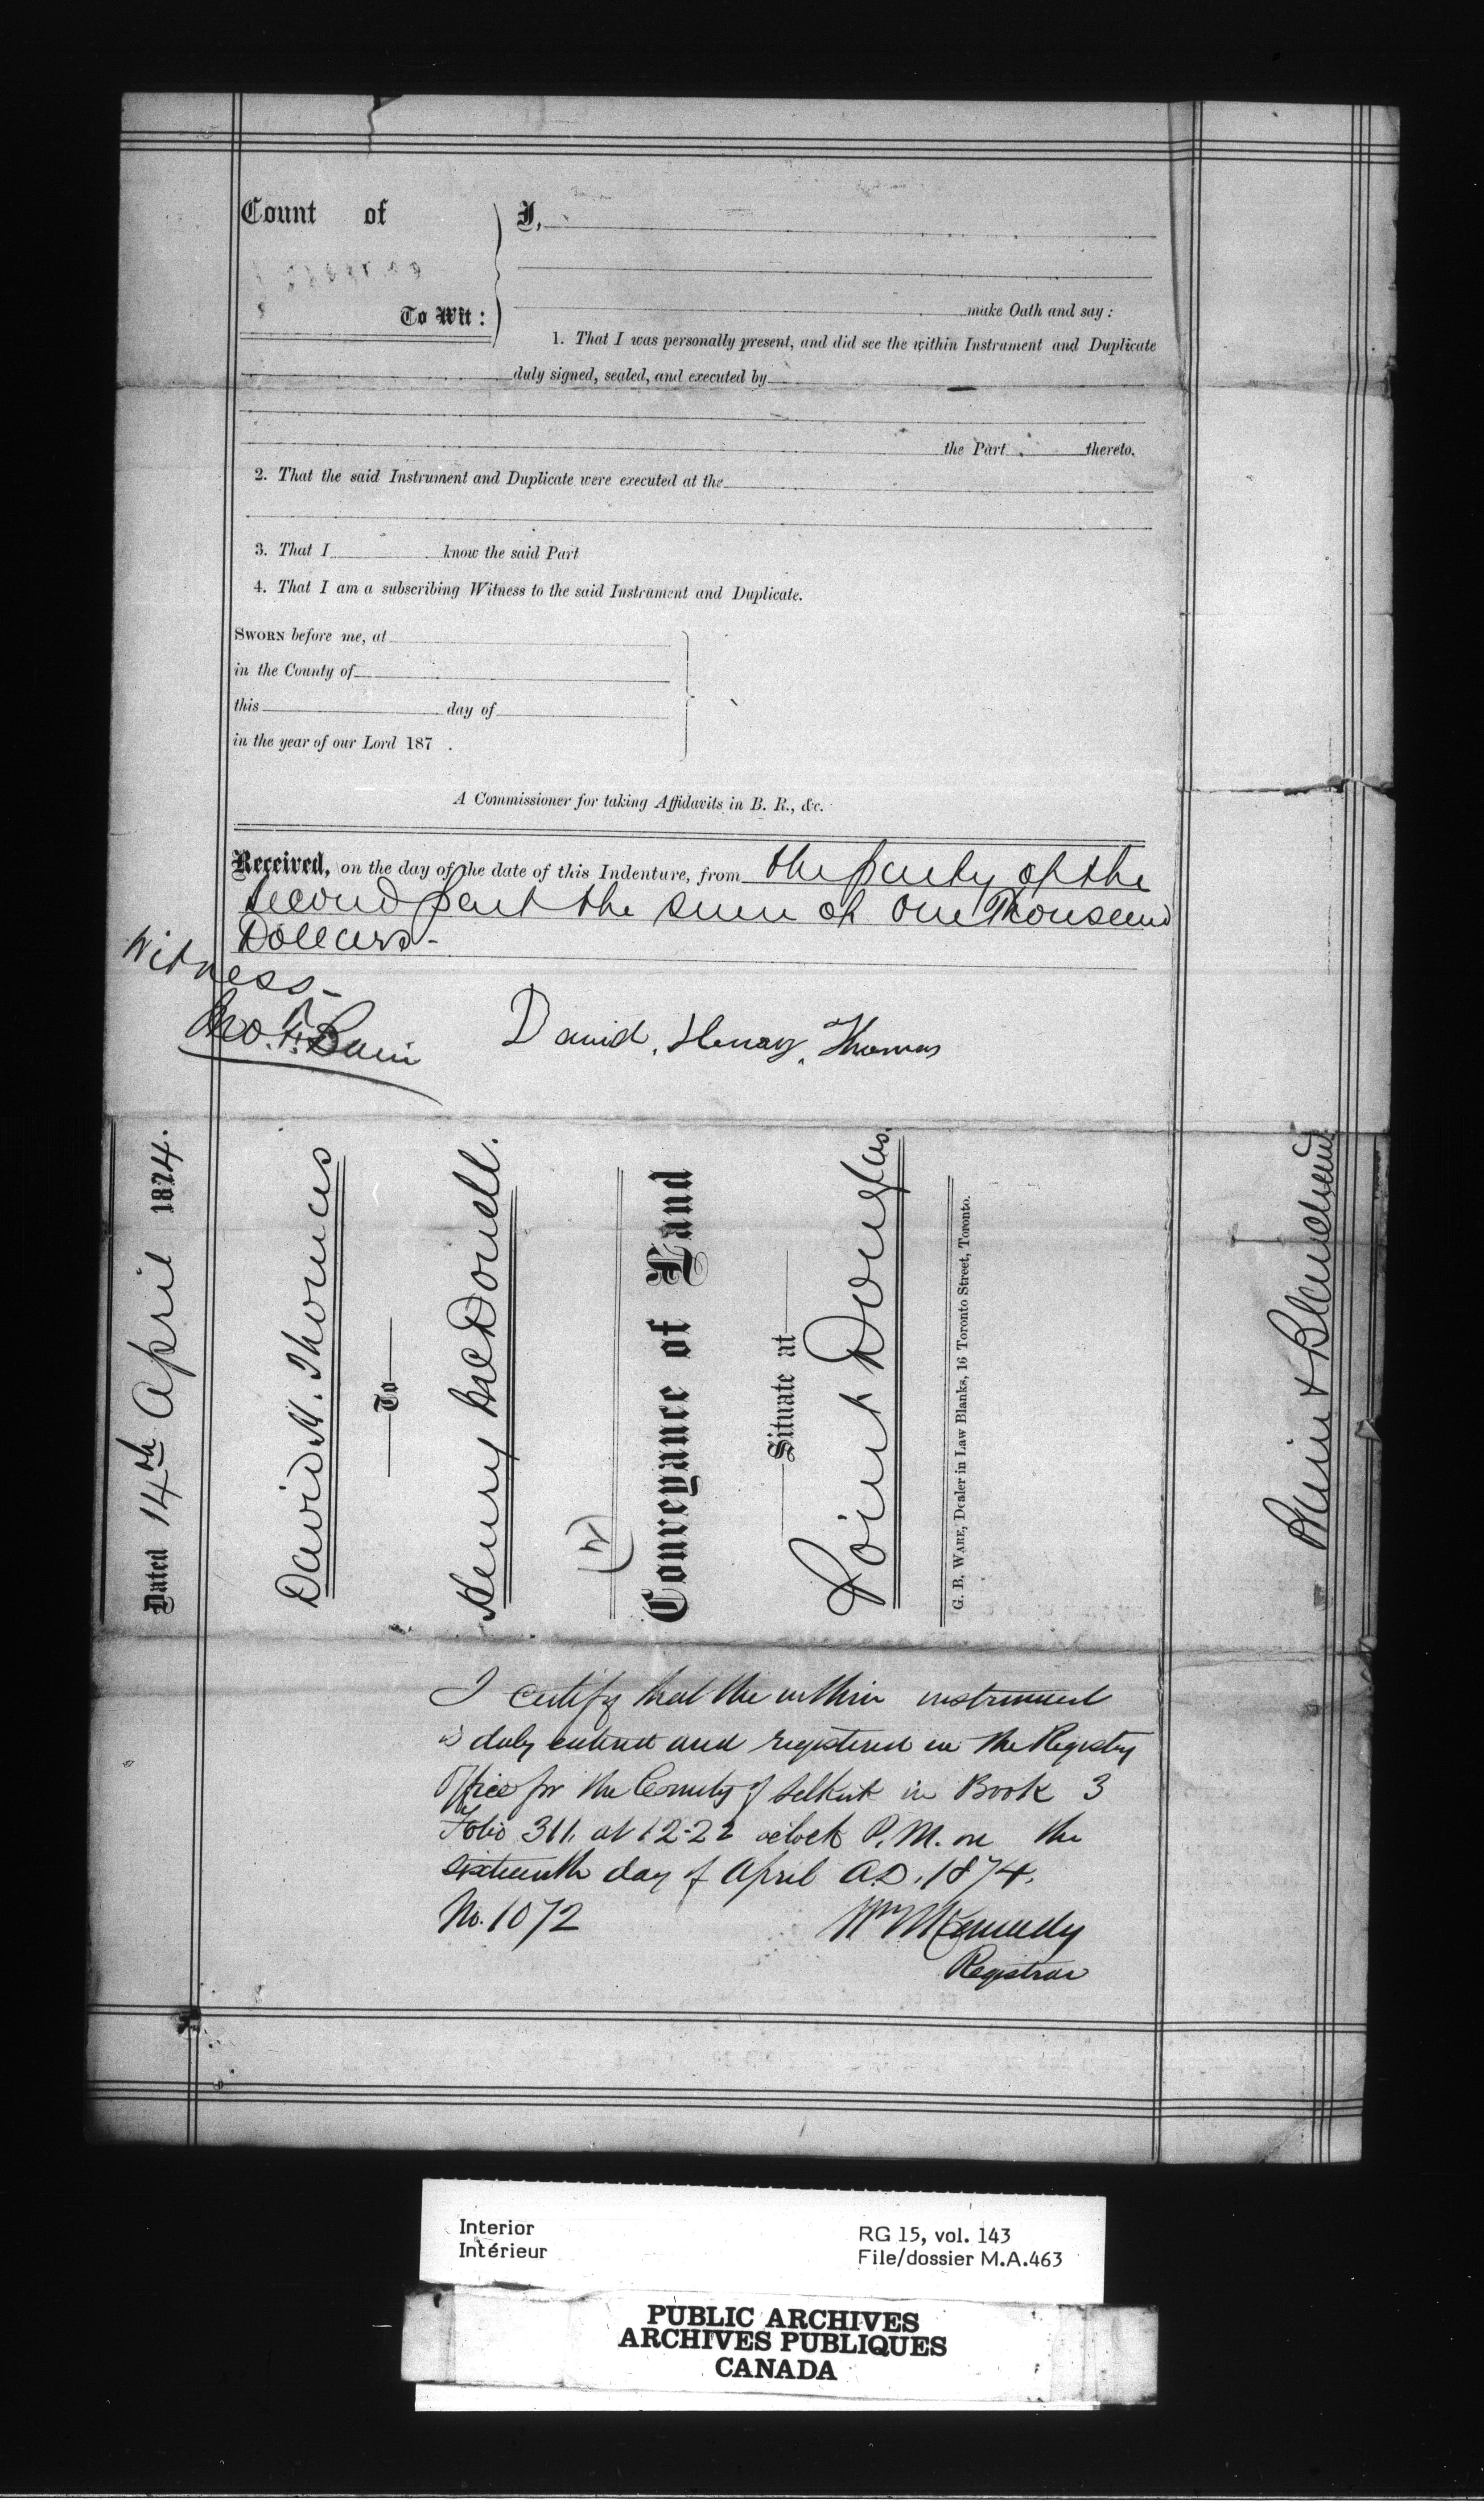 Count of
To Wit:
I,
make Oath and say:
1. That I was personally present, and did see the within Instrument and Duplicate
duly signed, sealed, and executed by
the Part thereto.
2. That the said Instrument and Duplicate were executed at the
3. That I know the said Part
4. That I am a subscribing Witness to the said Instrument and Duplicate.
SWORN before me, at
in the County of
this day of
in the year of our Lord 187 .
A Commissioner for taking Affidavits in B. R., &c.
Received, on the day of the date of this Indenture, from the party of the
second part the sum of One Thousand
Dollars-
Witness-
Jno. F. Bain
David Henry Thomas
Dated 14th April 1874.
David H. Thomas
To
Henry McDonell.
Conveyance of Land
Situate at
Point Douglas.
G. B. WARE, Dealer in Law Blanks, 16 Toronto Street, Toronto.
Bain & Blanchard
I certify that the within instrument
is duly entered and registered in the Registry
Office for the County of Selkirk in Book 3
Folio 311. at 12-22 oclock P.M. on the
sixteenth day of April A.D. 1874.
No. 1072
Wm Kennedy
Registrar
Interior
Intérieur
RG 15, vol. 143
File/dossier M.A.463
PUBLIC ARCHIVES
ARCHIVES PUBLIQUES
CANADA